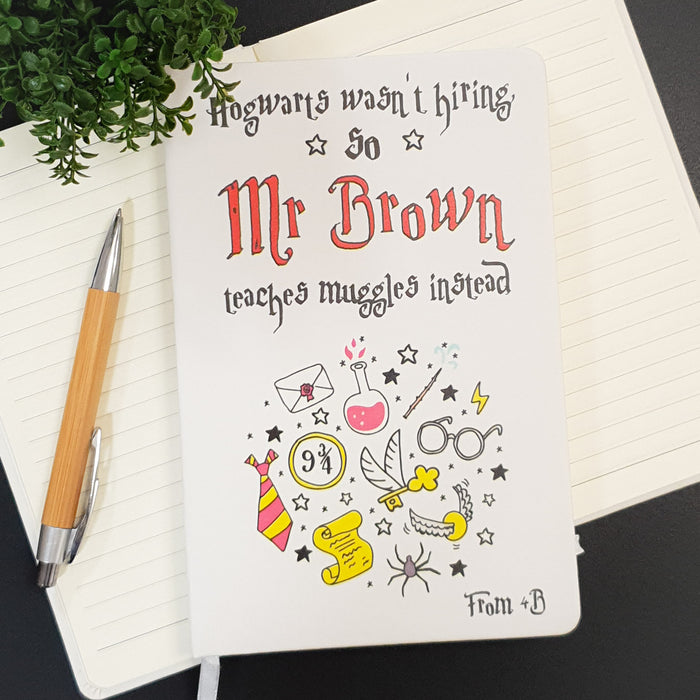 Hogwarts wasn't hiring
So
Mr Brown
teaches muggles instead
9¾
From 4B